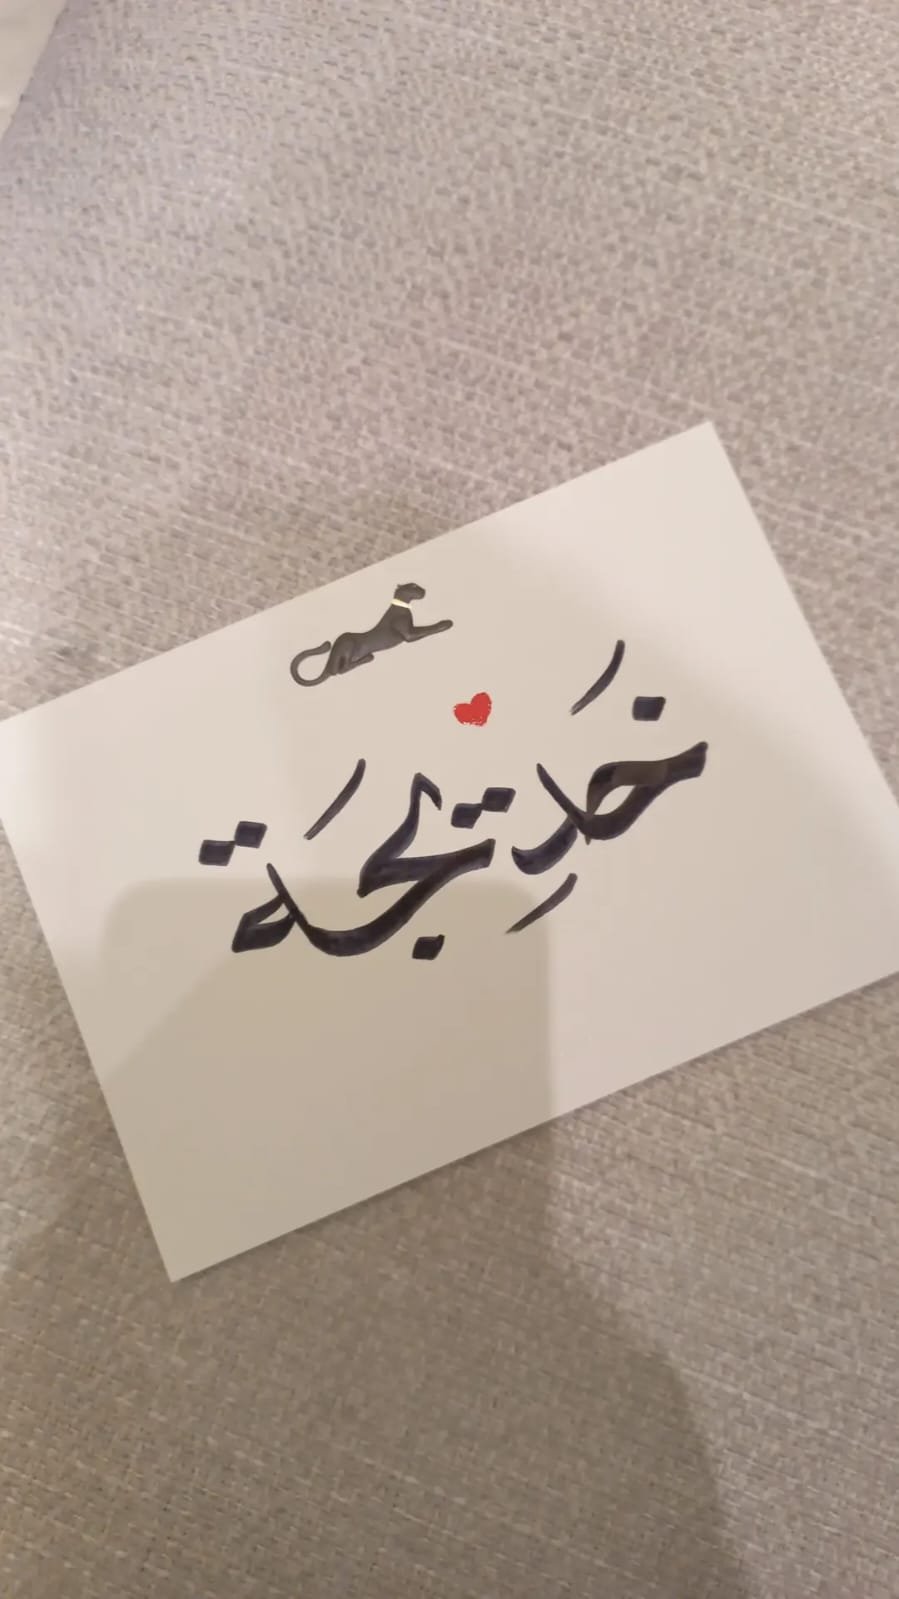 خَدِيجَة